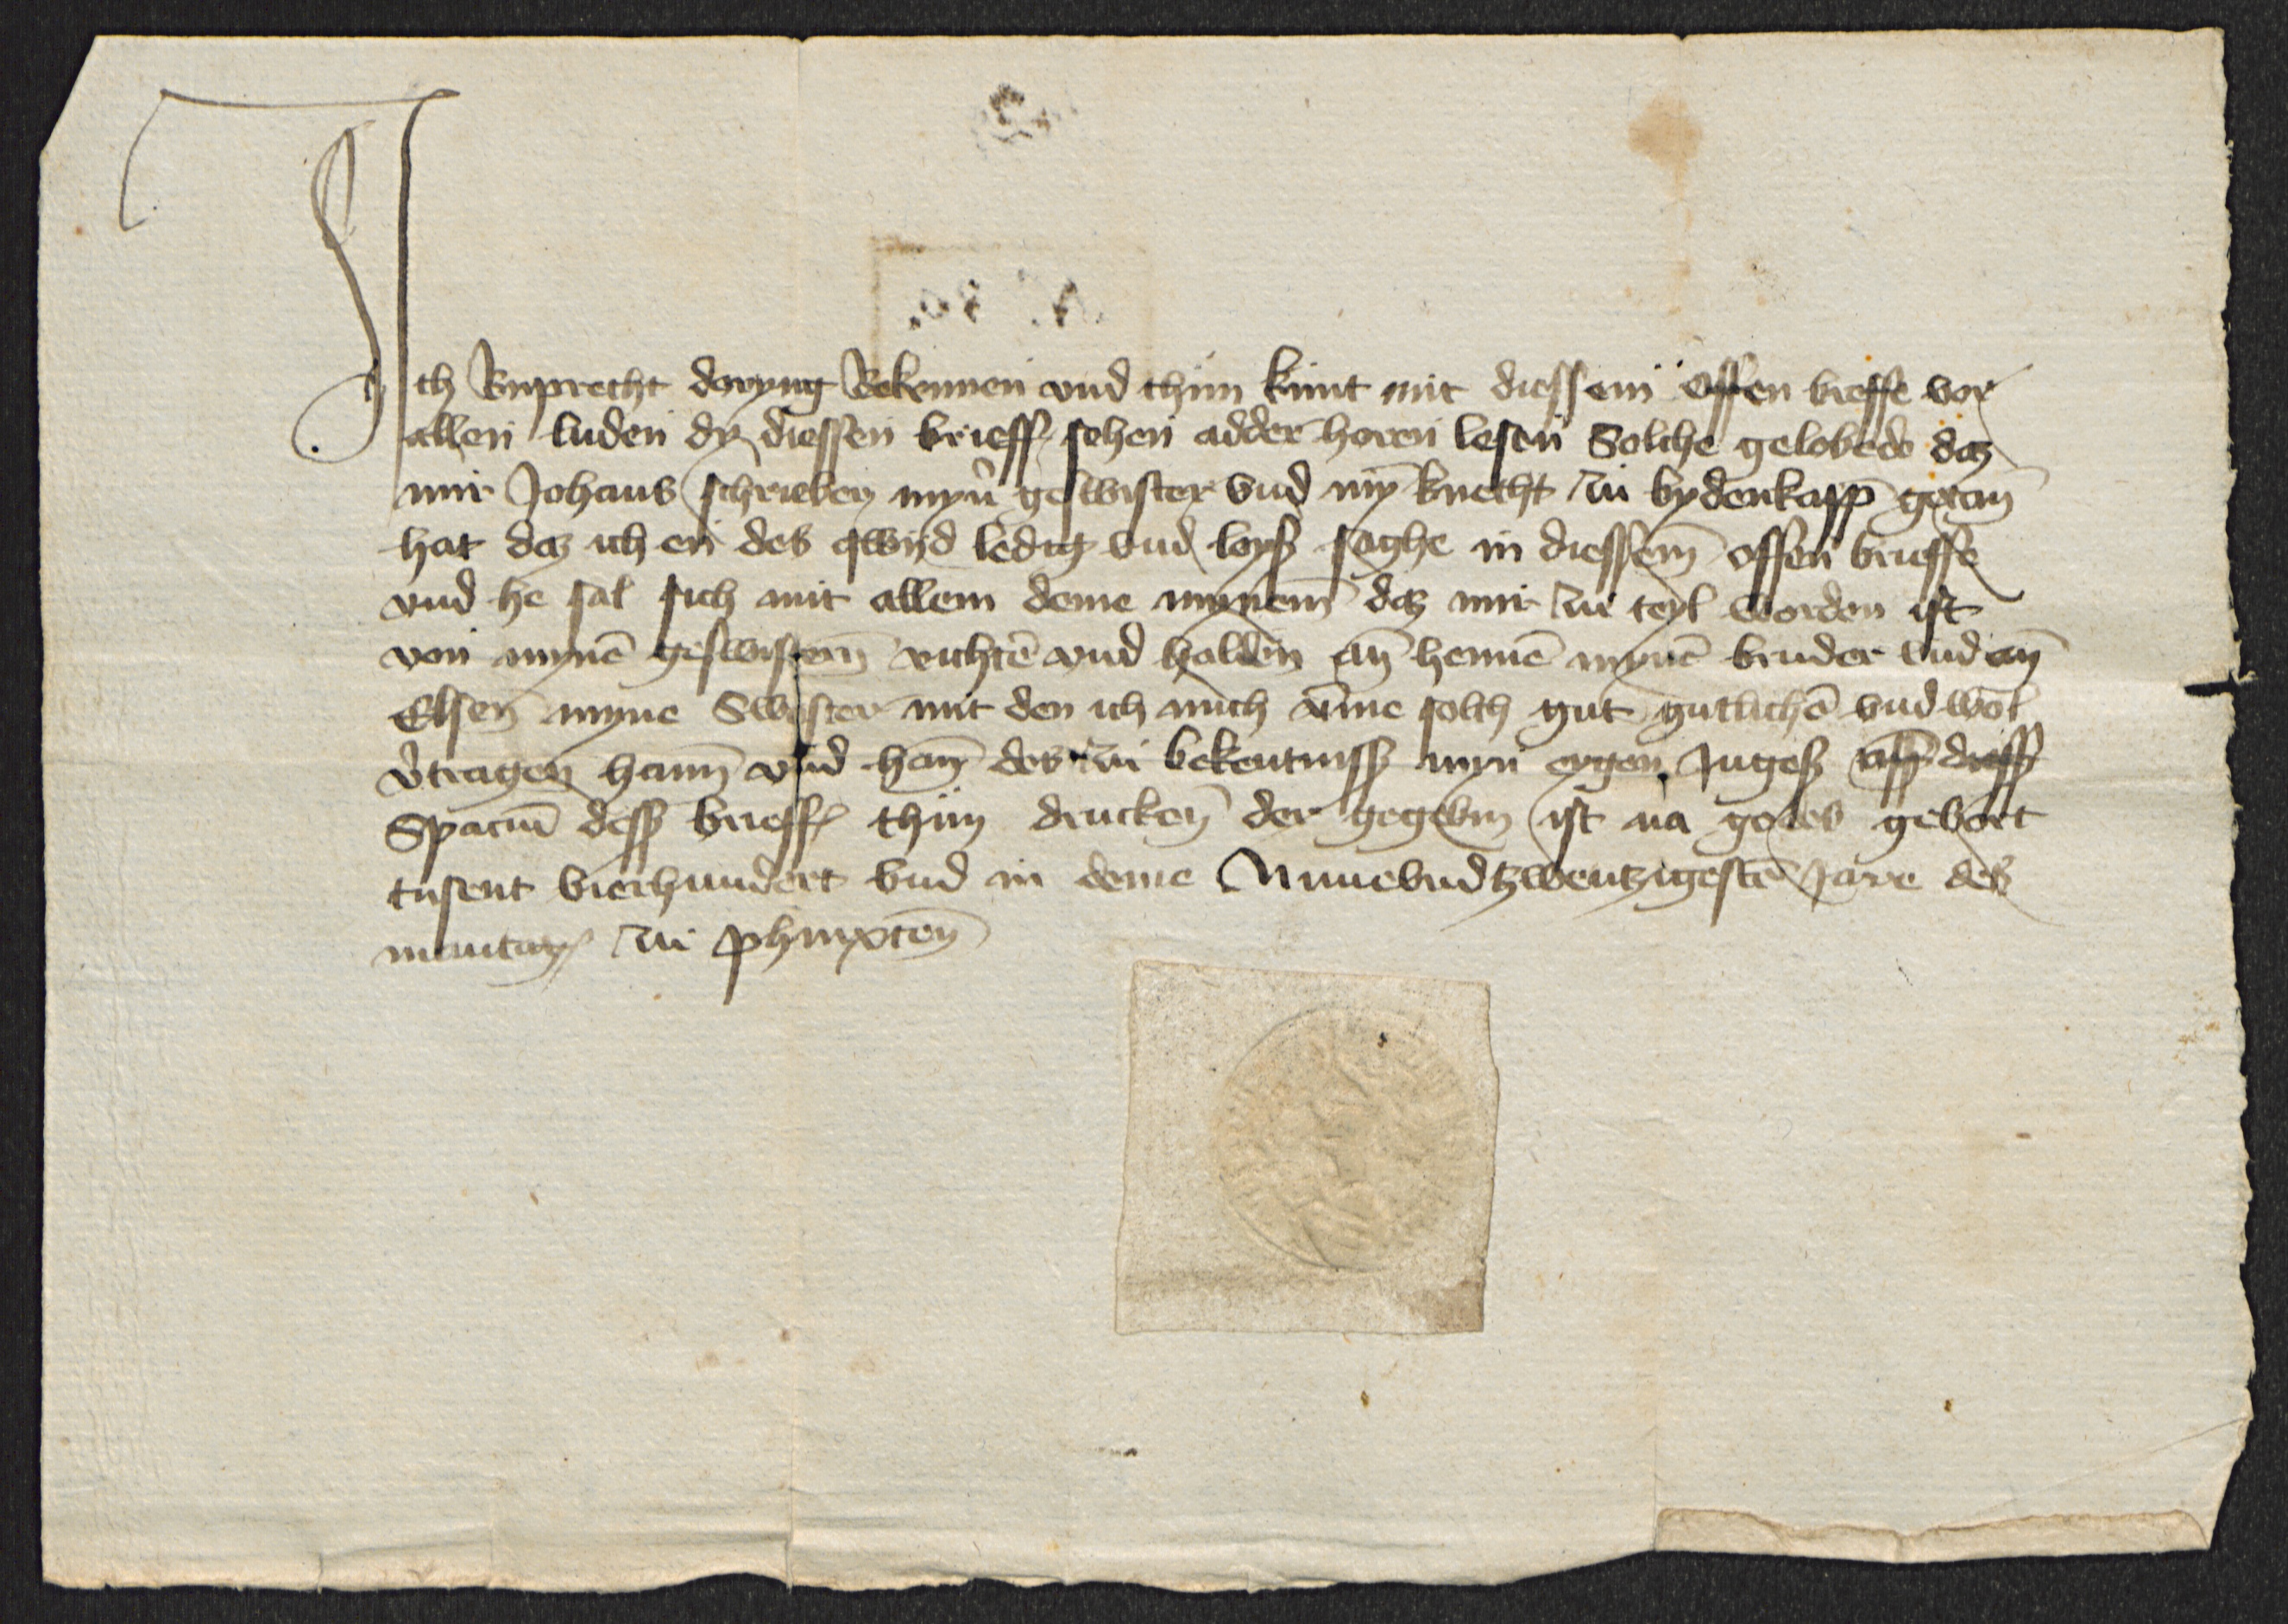 Ich Ruprecht doryng Bekennen vnd thun kunt mit diessem offen brieffe vor
allen luden dy diessen brieff sehen adder horen lesen Solche gelobede daz
mir Johans schrieber myn geswister vnd myn knecht zu bydenkapp getan
hat daz ich en des qwijd ledig vnd loyß saghe in diessem offen brieffe
vnd he sal sich mit allem deme mynem daz mir zu teyl worden ist
von mynē geswistern richtē vnd halden an hennē mynē bruder vnd an
Elsen myne Swester mit den ich mich vmme solch gut gutlichē vnd wol
v̄tragen hann vnd han des zu bekentniß myn eygen Ingeß uff dieß
Spaciū deß brieff thun drucken der gegebin ist na godes gebort
tusent vierhundert vnd in deme Nunevndtzwentzigestē Jare des
mantag zu phinxten